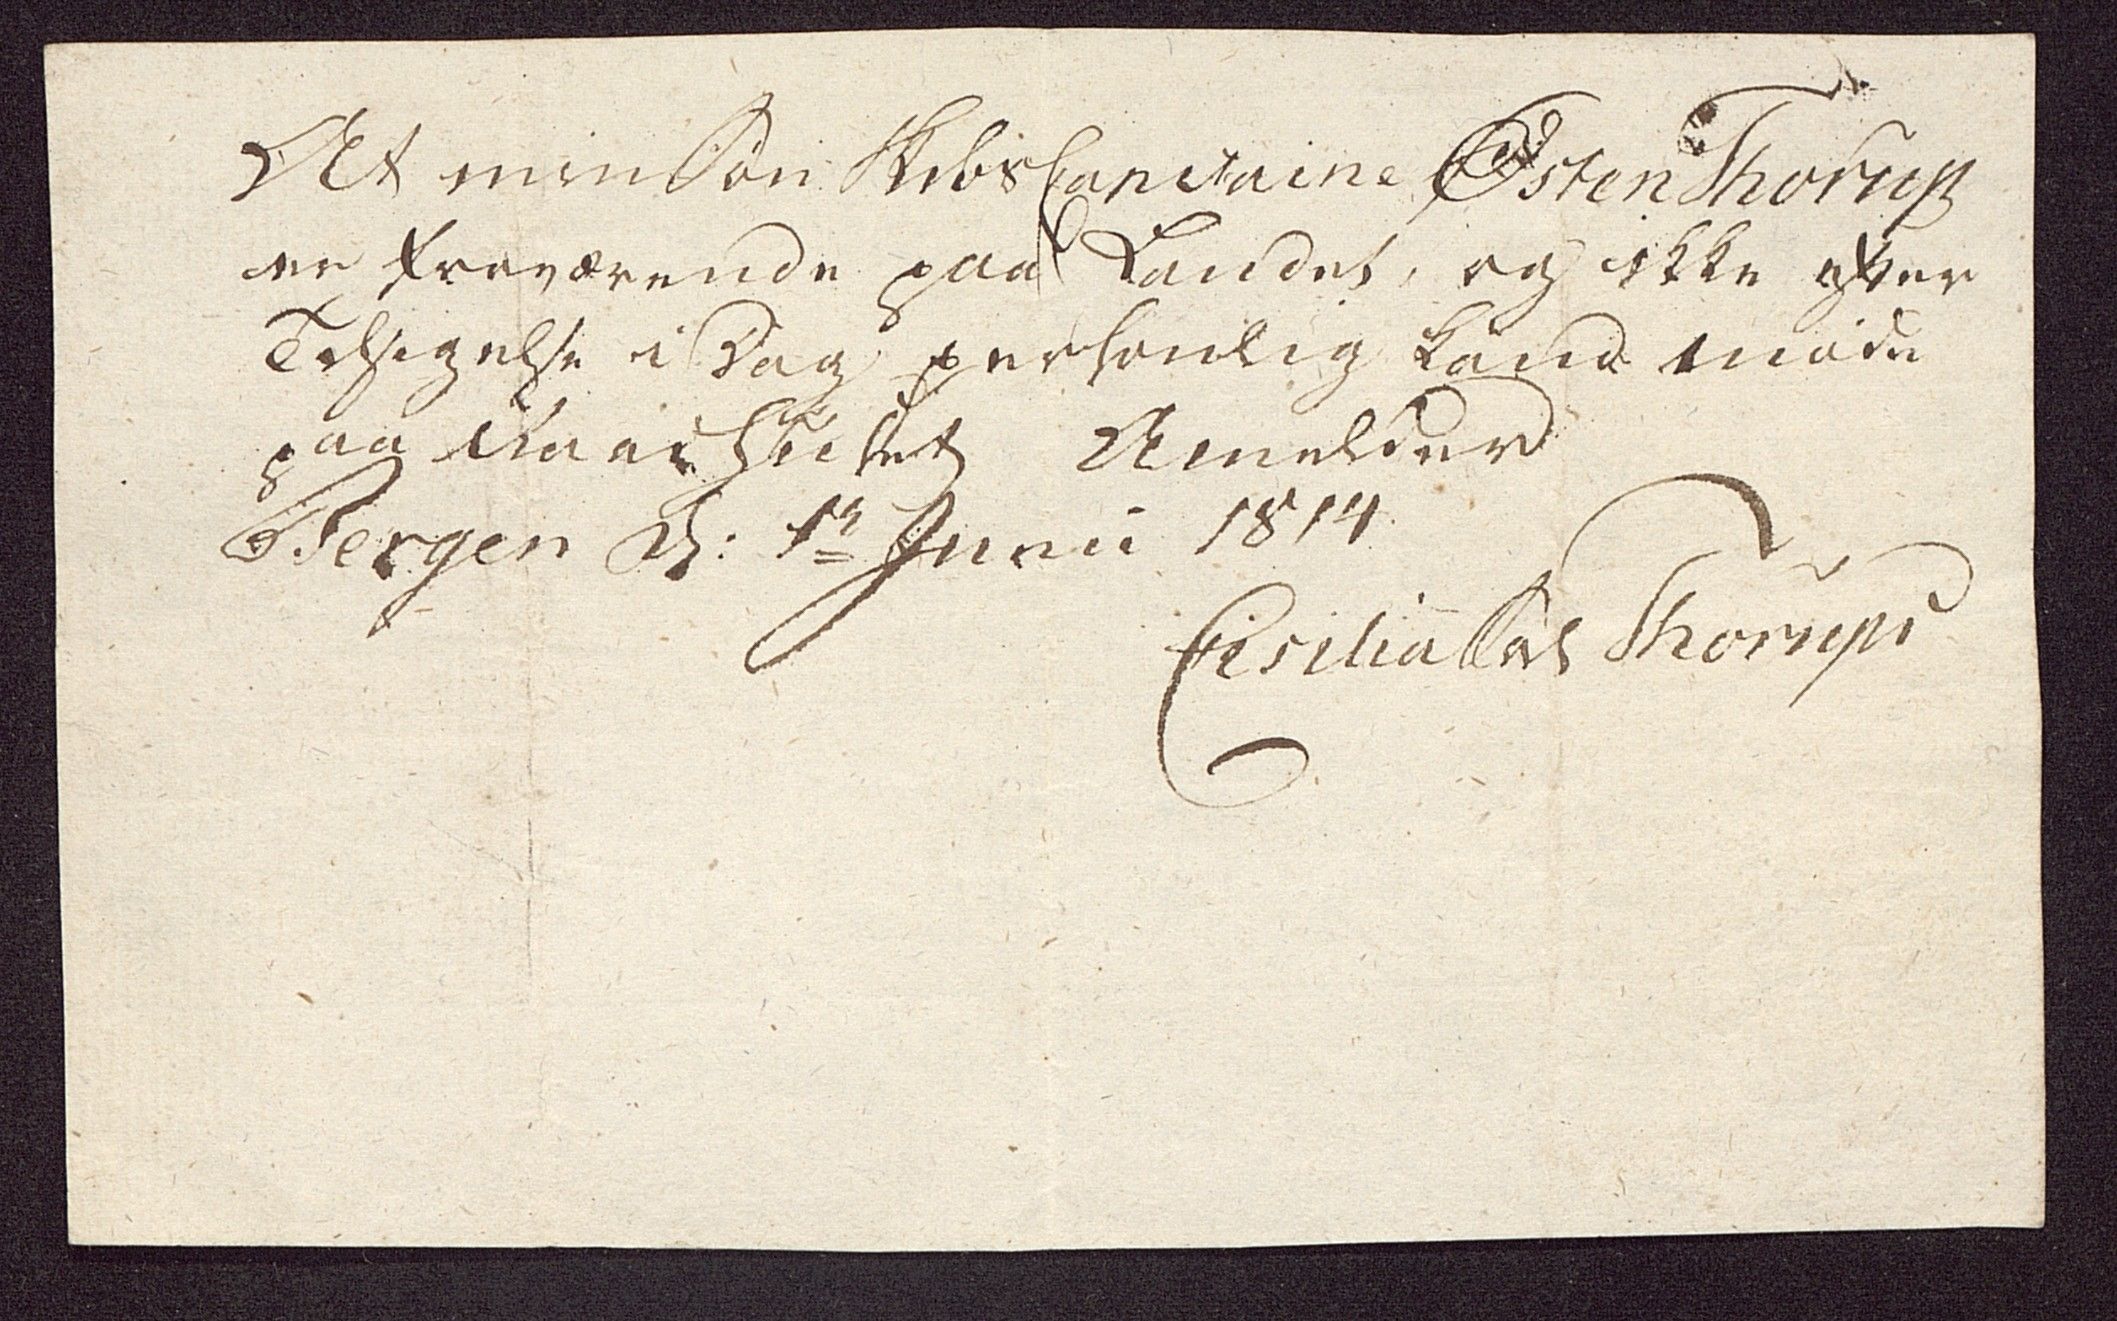 At min Søn Skibs Capitaine Østen Thorup
er fraværende paa Landet, og ikke efter
Tilsigelse i Dag personlig kand møde
paa Raadstuet Anmelder
Bergen D: 1te Junii 1814
Cisilia Sal Thorups